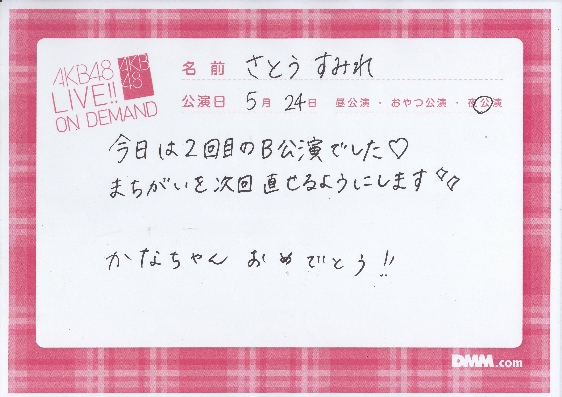 AKB48
LIVE!!
ON DEMAND
AKB
48
名前 さとうすみれ
公演日 5月 24日 昼公演・おやつ公演・夜公演
今日は2回目のB公演でした♡
まちがいを次回直せるようにします
かなちゃん おめでとう!!
DMM.com